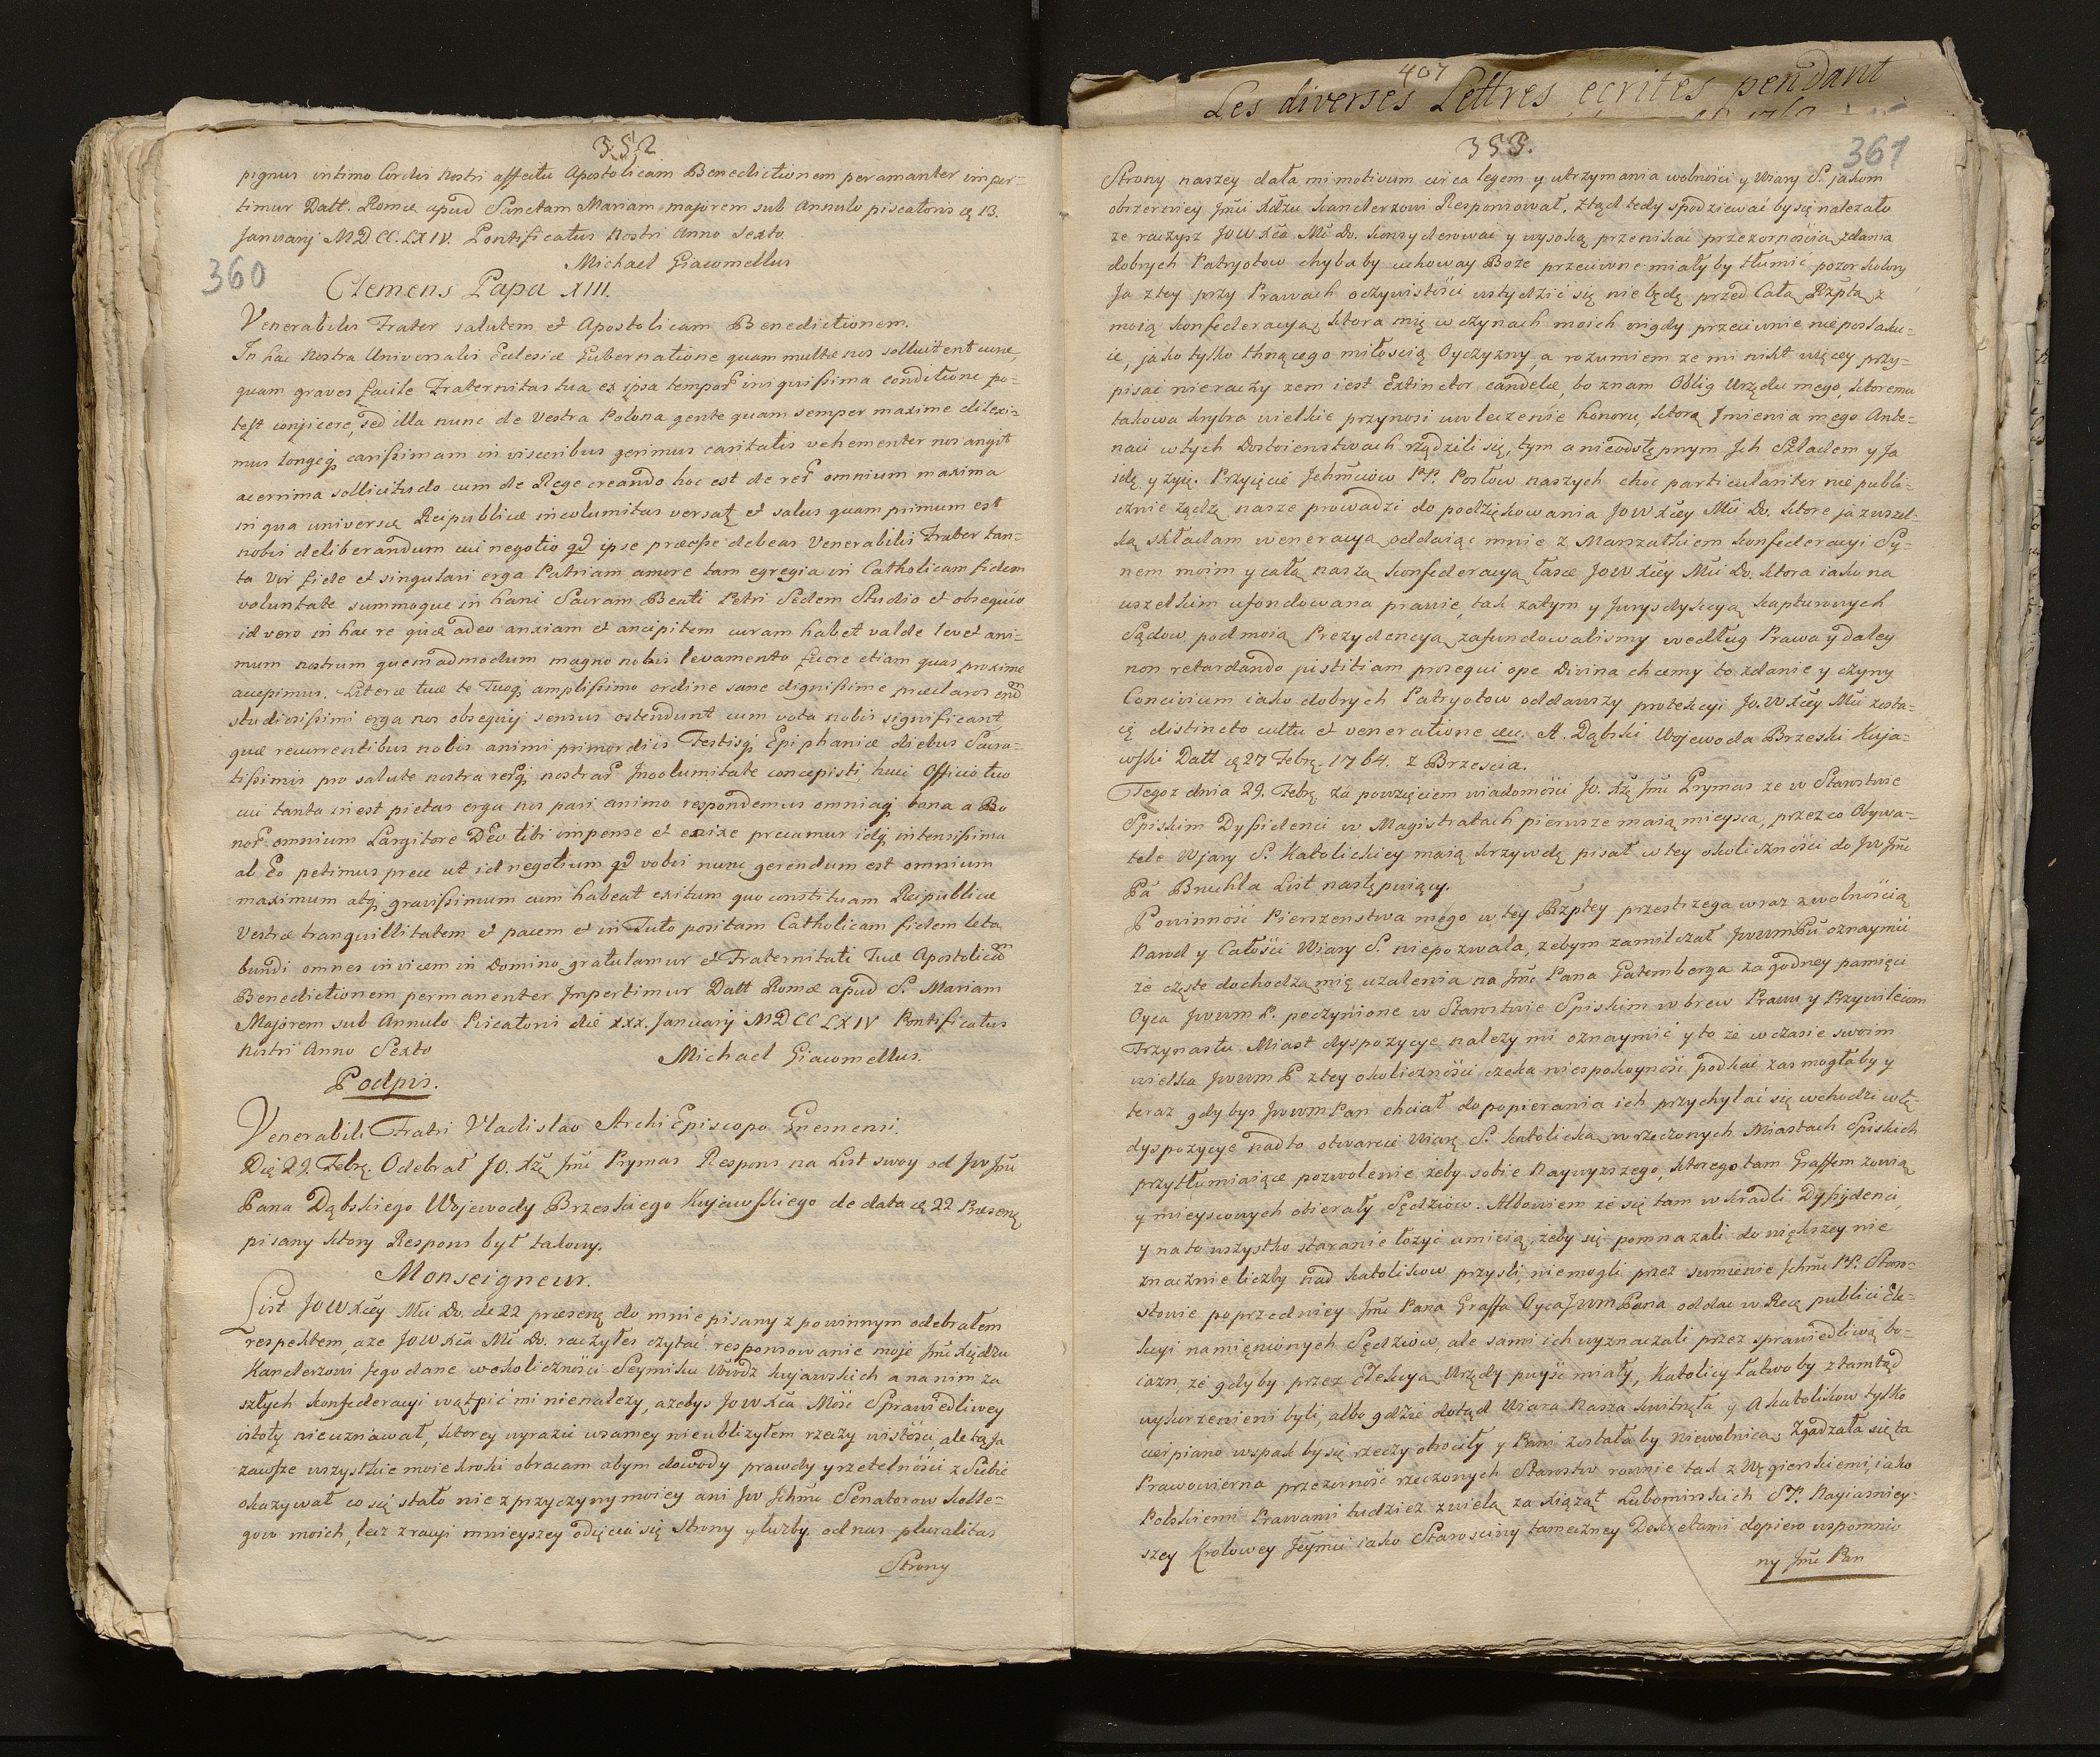 352
pignus intimo Cordis nostri affectu Apostolicam Benedictionem peramanter imper-
timur Datt. Romæ apud Sanctam Mariam majorem sub Annulo piscatoris 13.
Januarij MDCCLXIV. Pontificatus Nostri Anno Sexto
Michael Giacomellus
360
Clemens Papa XIII.
Venerabilis Frater salutem et Apostolicam Benedictionem.
In hac Nostra Universalis Eclesiæ Gubernatione quam multæ nos sollicitent curæ,
quam graves facile Fraternitas tua ex ipsa tempor iniquissima conditione po-
test conjicere, sed illa nunc de Vestra Polona gente quam semper maxime dilexi-
mus longeq carissimam in visceribus gerimus caritatis vehementer nos angit
acerrima sollicitudo cum de Rege creando hoc est de re omnium maxima
in qua universæ Reipublicæ incolumitas versat et salus quam primum est
nobis deliberandum cui negotio qd ipse præesse debeas Venerabilis Frater tan-
ta vir fide et singulari erga Patriam amore tam egregia in Catholicam fidem
voluntate summoque in hanc Sacram Beati Petri Sedem Studio et obsequio
id vero in hac re quæ adeo anxiam et ancipitem curam habet valde levet ani-
mum nostrum quemadmodum magno nobis levamento fuere etiam quas proxime
accepimus. Literæ tuæ te Tuoq amplissimo ordine sane dignissime præclaros
studiosissimi erga nos obsequij sensus ostendunt cum vota nobis significant
quæ recurrentibus nobis animi primordiis Festisq Epiphaniæ diebus Sacra-
tissimis pro salute nostra rerq nostrar Incolumitate concepisti, huic Officio tuo
cui tanta inest pietas erga nos pari animo respondemus omniaq bona a Bo
nor omnium Largitore Deo tibi impense et enixe precamur idq intensissima
ab Eo petimus prece ut id negotium qd vobis nunc gerendum est omnium
maximum atq gravissimum eum habeat exitum quo constituam Reipublicæ
Vestræ tranquillitatem et pacem et in Tuto positam Catholicam fidem læta
bundi omnes invicem in Domino gratulamur et Fraternitati Tuæ Apostolicam
Benedictionem permanenter Impertimur Datt Romæ apud S. Mariam
Majorem sub Annulo Picatoris die XXX. Januarij MDCCLXIV Pontificatus
Nostri Anno Sexto Michael Giacomellus.
Podpis.
Venerabili Fratri Vladislao Archi Episcopo Gnesnensi.
Die 29. Febr. Odebrał JO. Xże Jmć Prymas Respons na List swoy od JW Jmć
Pana Dąbskiego Wojewody Brzeskiego Kujawskiego de data 22 Præsen
pisany ktory Respons był takowy.
Monseigneur.
List JOWXcey Mći Do. de 22 præsen do mnie pisany z powinnym odebrałem
respektem, aże JOWXca Mć Do. raczyłeś czytać responsowanie moje Jmć Xiędzu
Kanclerzowi Jego dane wokoliczności Seymiku kujawskich a na nim za
szłych konfederacyi wątpić mi nienależy, ażebyś JOWXca Mość Sprawiedliwey
istoty nieuznawał, ktorey wyrazić wsamey nieubliżyłem rzeczy wistości, ale tę Ja
zawsze wszystkie moie kroki obracam abym dowody prawdy y rzetelności z Siebie
okazywał co się stało nie z przyczyny moiey ani JW Ichmć Senatorow kolle-
gow moich, lecz z racyi mnieyszey odięcia się strony y liczby od nas pluralitas
Strony
407
Les diverses Lettres ecrites pendant
353.
361
Strony naszey dała mi motivum circa legem y utrzymania wolności y Wiary S. jakom
obszerniey Jmći Xdzu kanclerzowi Responsował. Ztąd tedy spodziewać by się należało
ze raczysz JOWXca Mć Do. konsyderować y wysoką przenikać przezornością zdania
dobrych Patryotow chybaby uchoway Boże przeciwne miały by tłumić pozor kolory
Ja z tey przy Prawach oczywistości wstydzić się nie będę przed Całą Rzptą z
moią konfederacyą, ktora mię w czynach moich nigdy przeciwnie nie poszlaku-
ie, jako tylko tknącego miłością Oyczyzny, a rozumiem ze mi nikt więcey przy-
pisać nieraczy zem iest Extinctor candelæ, bo znam Oblig Urzędu mego, ktoremu
takowa krybra wielkie przynosi uwłeczenie honoru, ktorą Jmienia mego Ante-
naci w tych Dostoienstwach rządzili się, tym a nieodstępnym Ich Szladem y Ja
idę y żyię. Przyięcie Ichmciow PP. Posłow naszych choc particulariter nie publi-
cznie żądzę nasze prowadzi do podziękowania JOWXcey Mći Do. ktore ja z wszel-
ką składam weneracyą oddaiąc mnie z Marszałkiem konfederacyi Sy-
nem moim y całą naszą konfederacyą łasce JOWXcey Mći Do. ktora iako na
wszelkim ufondowana prawie, tak zatym y Jurysdykcyą kapturowych
Sądow, pod moią Prezydencyą zafundowalismy według Prawa y daley
non retardando justitiam prosequi ope Divina chcemy to zdanie y czyny
Concivium iako dobrych Patryotow oddawszy protekcyi Jo.WXcey Mći zosta-
ię distincto cultu et veneratione etc. A. Dąbski Wojewoda Brzeski Kuja-
wski Datt 27 Febr. 1764. z Brzescia.
Tegoz dnia 29. Febr. za powzięciem wiadomości Jo. Xże Jmć Prymas ze w Starstwie
Spiskim Dyssidenci w Magistratach pierwsze maią mieysca, przez co Obywa-
tele Wiary S. Katolickiey maią krzywdę pisał w tey okoliczności do JW Jmć
Pa Bruchla List następuiący.
Powinność Pierszenstwa mego w tey Rzptey przestrzega wraz z wolnością
Narod y Całości Wiary S. niepozwala, zebym zamilczał JWWmPu oznaymić
że częste dochodzą mię uzalenia na Jmć Pana Gatemberga za godney pamięci
Oyca JWWm P. poczynione w Starstwie Spiskim w brew Prawu y Przywileiom
Trzynastu Miast dyspozycye nalezy mi oznaymić y to że w czasie swoim
wielka JWWm P z tey okoliczności czeka niespokoyność podkać zas mogłaby y
teraz gdybyś JWWmPan chciał do popierania ich przychylać się wchodzi w tę
dyspozycye nadto otwarcie Wiarę S. katolicką w rzeczonych Miastach Spiskich
przytłumiaiące pozwolenie żeby sobie Naywyzszego, ktorego tam Graffem zowią
y mieyscowych obierały Sędziow. Albowiem że się tam wkradli Dyssydenci,
y na to wszystko staranie łożyć umieią, żeby się pomnazali do większey nie
znacznie liczby nad katolikow przyśli, niemogli przez sumienie Ichmć PP. Staro-
stowie poprzedniey Jmć Pana Graffa OycaJWWm Pana oddac w Rece publici Ele-
kcyi namienionych Sędziow, ale sami ich wyznaczali przez sprawiedliwą bo-
iazn, ze gdyby przez Elekcyą Urzędy puyść miały, Katolicy łatwo by ztamtąd
wykorzenieni byli, albo gdzie dotąd Wiara Nasza kwitnęła y Akatolikow tylko
cierpiano wspak by się rzeczy obrociły y Pani została by Niewolnicą, Zgadzała się ta
Prawowierna przezorność rzeczonych Starostw rownie tak z Węgierskiemi, iako
Polskiemi Prawami tudziez z wielą za Xiążąt Lubomirskich SP. Nayiasniey-
szey Krolowey Jeymći iako Starosciny tameczney Dekretami dopiero wspomnio
ny Jmć Pan